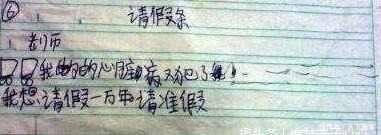 ⑥ 请假条
老师
我的的心脏病又犯了
我想请假一万年请准假